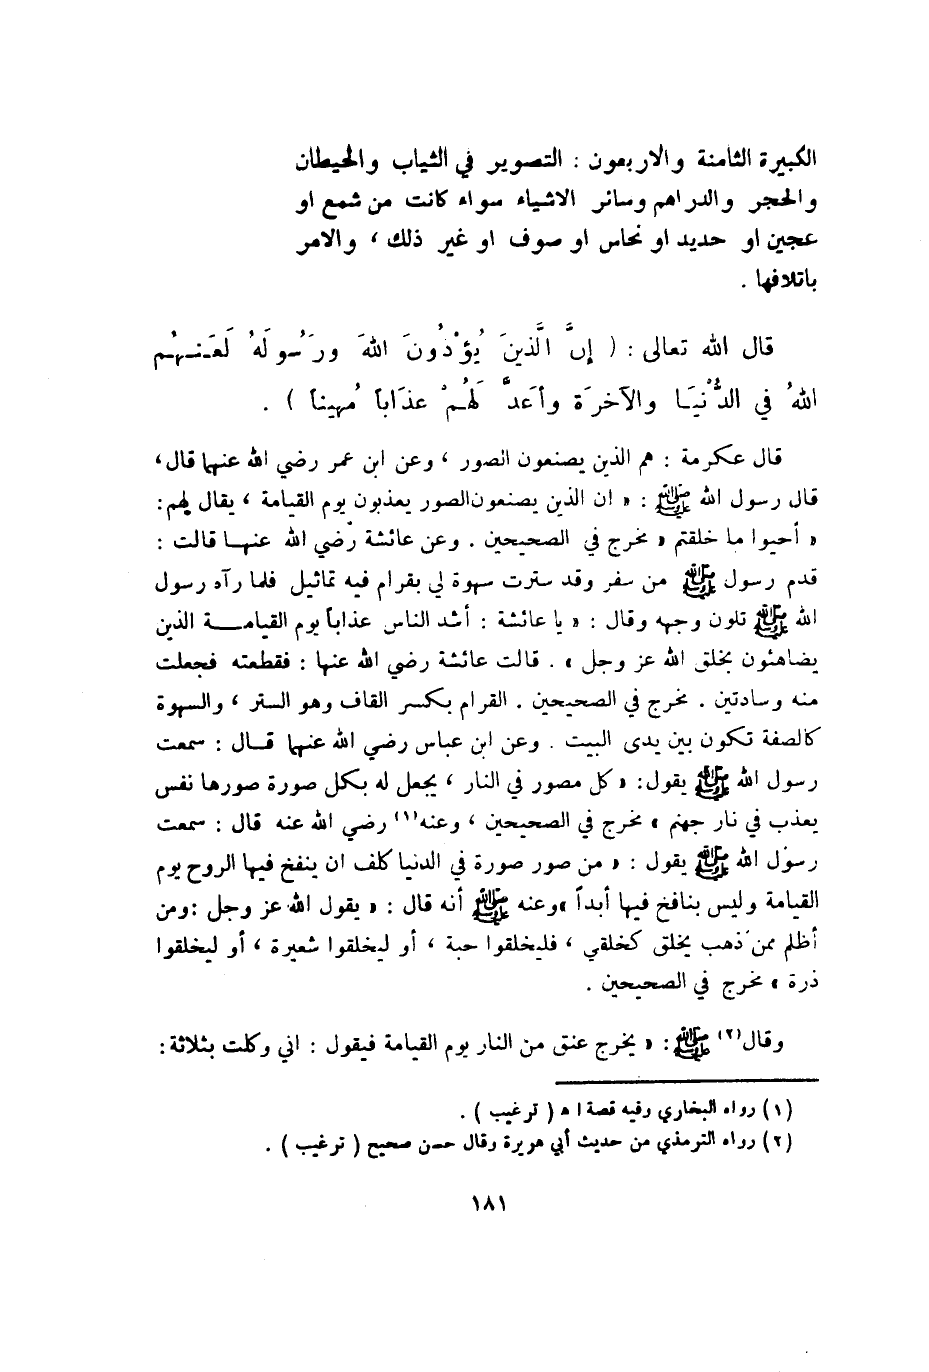 الكبيرة الثامنة والاربعون : التصوير في الثياب والحيطان
والحجر والدراهم وسائر الاشياء سواء كانت من شمع او
عجين او حديد او نحاس او صوف او غير ذلك ، والامر
باتلافها .
قال الله تعالى : ( إنَّ الَّذينَ يُؤْذُونَ اللهَ ورَسُولَهُ لَعَنَهُم
اللهُ في الدُّنْيَا والآخرَة وأعَدَّ لَهُمْ عذَاباً مُهيناً ) .
قال عكرمة : هم الذين يصنعون الصور ، وعن ابن عمر رضي الله عنهما قال ،
قال رسول الله ﷺ : « ان الذين يصنعون الصور يعذبون يوم القيامة ، يقال لهم :
« أحيوا ما خلقتم » مخرج في الصحيحين . وعن عائشة رضي الله عنها قالت :
قدم رسول ﷺ من سفر وقد سترت سهوة لي بقرام فيه تماثيل فلما رآه رسول
الله ﷺ تلون وجهه وقال : « يا عائشة : أشد الناس عذاباً يوم القيامة الذين
يضاهئون بخلق الله عز وجل » . قالت عائشة رضي الله عنها : فقطعته فجعلت
منه وسادتين . مخرج في الصحيحين . القرام بكسر القاف وهو الستر ، والسهوة
كالصفة تكون بين يدى البيت . وعن ابن عباس رضي الله عنهما قال : سمعت
رسول الله ﷺ يقول : « كل مصور في النار ، يجعل له بكل صورة صورها نفس
يعذب في نار جهنم » مخرج في الصحيحين ، وعنه(١) رضي الله عنه قال : سمعت
رسول الله ﷺ يقول : « من صور صورة في الدنيا كلف ان ينفخ فيها الروح يوم
القيامة وليس بنافخ فيها أبداً » وعنه ﷺ أنه قال : « يقول الله عز وجل : ومن
أظلم ممن ذهب يخلق كخلقي ، فليخلقوا حبة ، أو ليخلقوا شعيرة ، أو ليخلقوا
ذرة » مخرج في الصحيحين .
وقال(٢) ﷺ : « يخرج عنق من النار يوم القيامة فيقول : اني وكلت بثلاثة :
(١) رواه البخاري وفيه قصة ا ه ( ترغيب ) .
(٢) رواه الترمذي من حديث أبي هريرة وقال حسن صحيح ( ترغيب ) .
١٨١